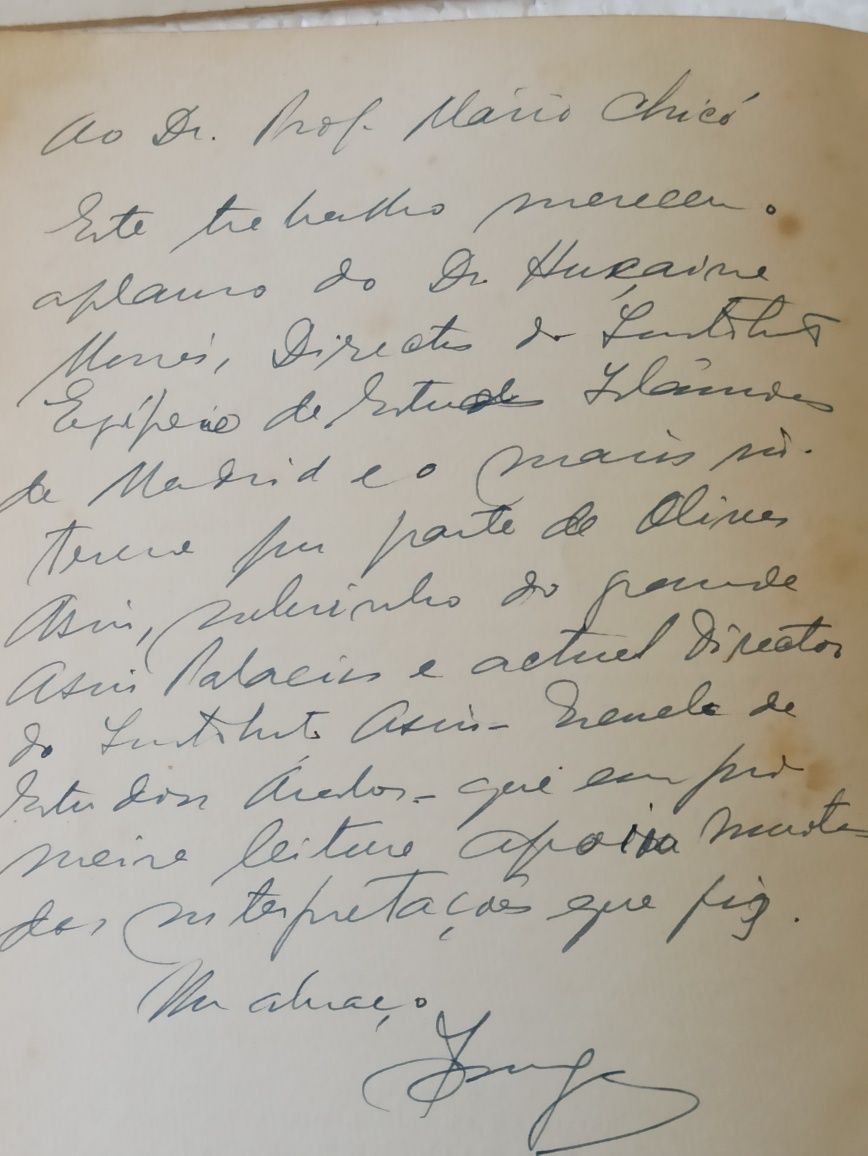 Ao Dr. Prof. Mário Chicó
Este trabalho mereceu o
aplauso do Dr. Huçaine
Monés, Director do Instituto
Egípcio de Estudos Islâmicos
de Madrid e o mais in-
teresse por parte de Oliver
Asin, sobrinho do grande
Asin Palacios e actual Director
do Instituto Asin - Escuela de
Estudios Árabes - que em pri
meira leitura apoiou muitas
das interpretações que fiz.
Um abraço